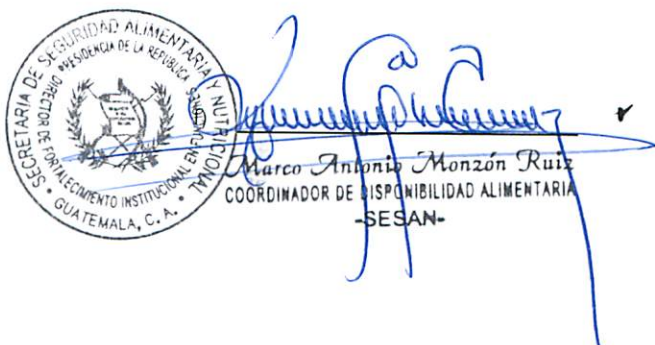 SECRETARIA DE SEGURIDAD ALIMENTARIA Y NUTRICIONAL
PRESIDENCIA DE LA REPUBLICA
DIRECTOR DE FORTALECIMIENTO INSTITUCIONAL EN FUNCIONES
GUATEMALA, C. A.
Marco Antonio Monzón Ruiz
COORDINADOR DE DISPONIBILIDAD ALIMENTARIA
-SESAN-